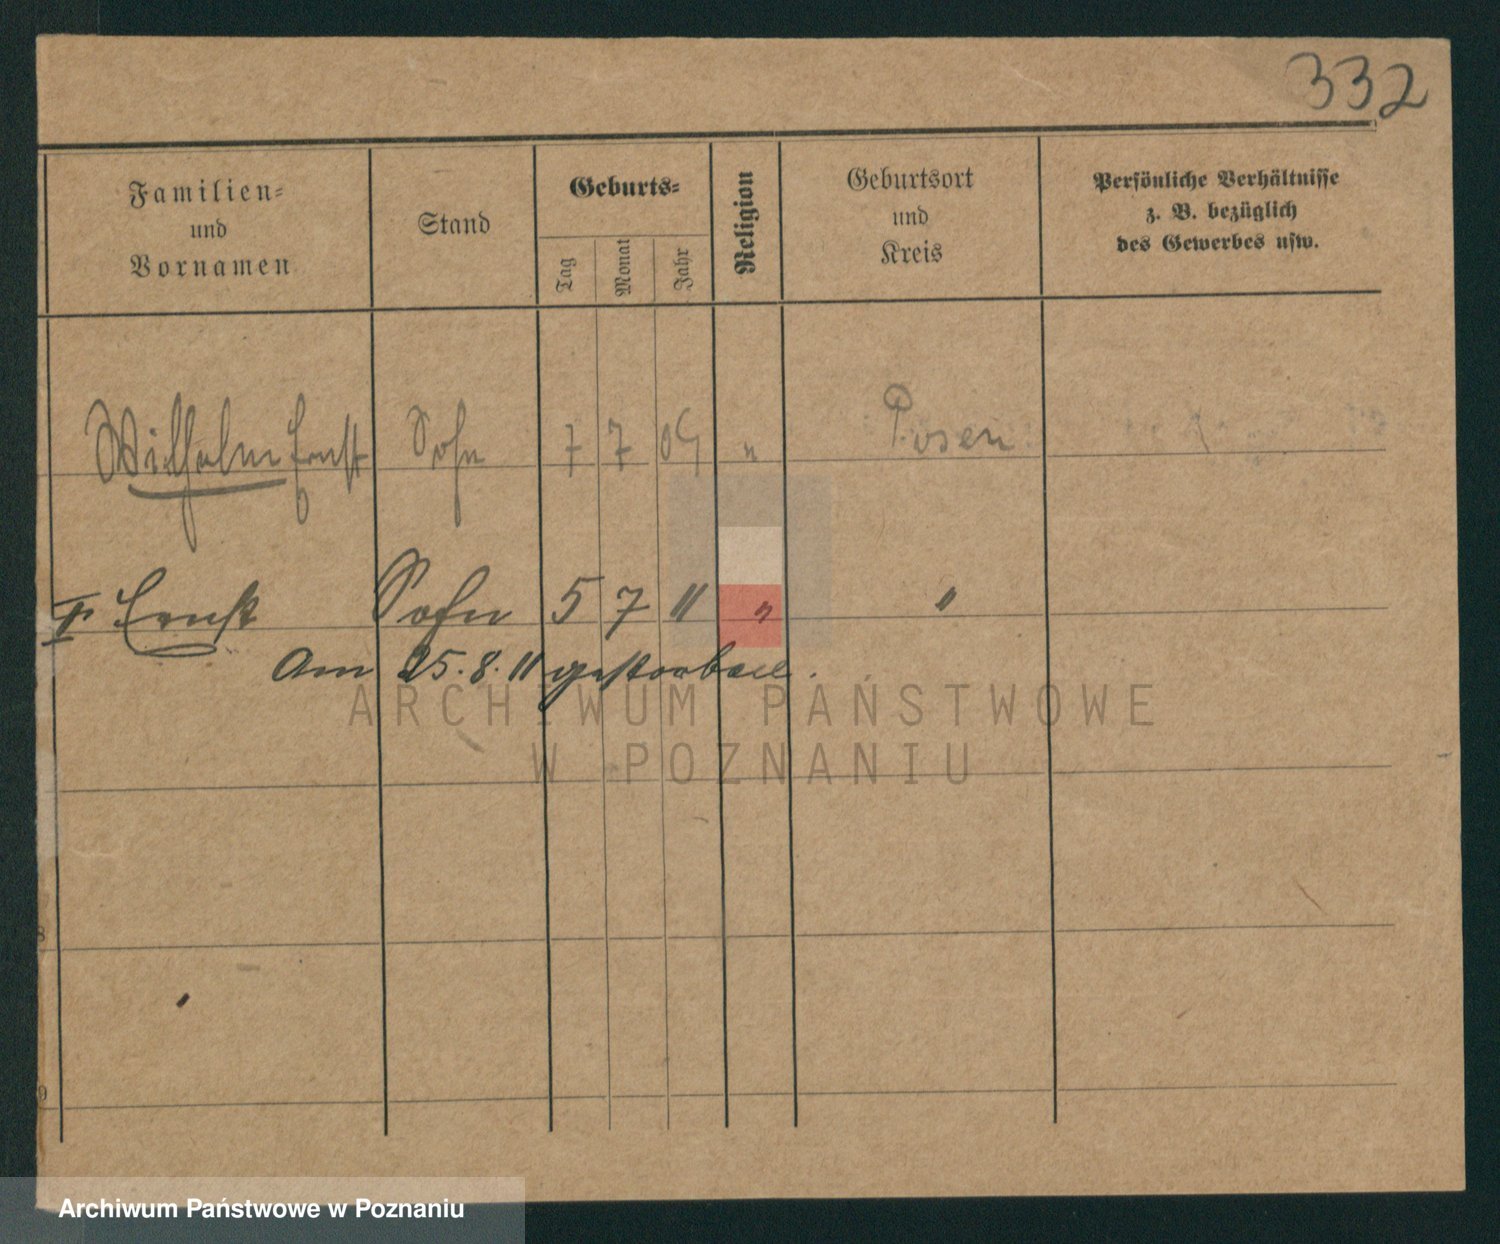 332
Familien-
und
Vornamen
Stand
Geburts-
Tag
Monat
Jahr
Religion
Geburtsort
und
Kreis
Persönliche Verhältnisse
z. B. bezüglich
des Gewerbes usw.
Wilhelm Ernst Sohn 7 7 09 " Posen
Ernst Sohn 5 7 11 " "
Am 25.8.11 gestorben.
ARCHIWUM PAŃSTWOWE
W POZNANIU
8
9
Archiwum Państwowe w Poznaniu